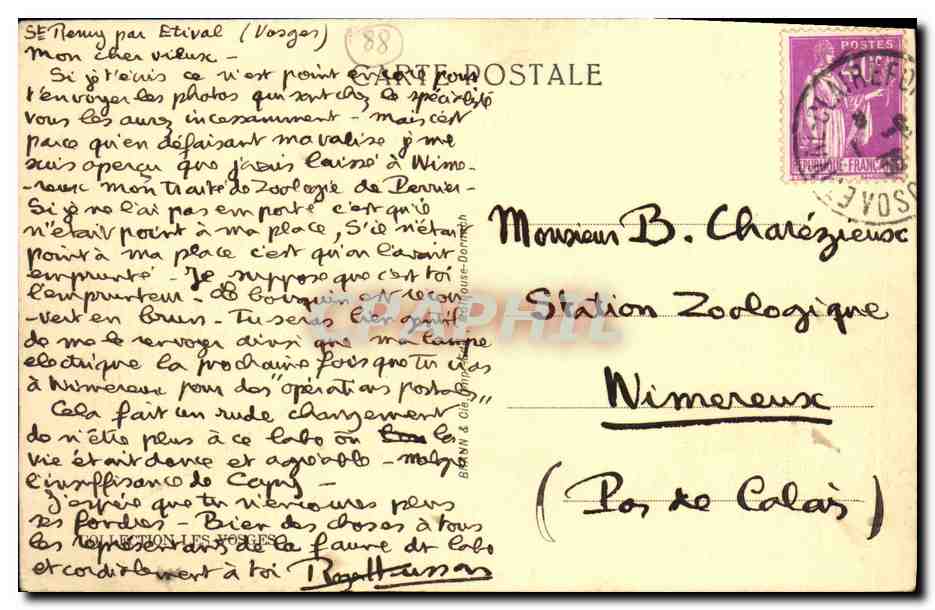 St Remy par Etival (Vosges)
88
Mon cher vieux -
Si je t'écris ce n'est point encore pour
t'envoyer les photos qui sont chez le spécialiste
vous les aurez incessamment - mais c'est
parce qu'en défaisant ma valise je me
suis aperçu que j'avais laissé à Wime-
-reux mon Traité de Zoologie de Perrier -
Si je ne l'ai pas emporté c'est qu'il
n'était point à ma place, S'il n'était
point à ma place c'est qu'on l'avait
emprunté - Je suppose que c'est toi
l'emprunteur - Le bouquin est recou-
vert en brun - Tu serais bien gentil
de me le renvoyer ainsi que ma lampe
electrique la prochaine fois que tu iras
à Wimereux pour des "opérations postales"
Cela fait un rude changement
de n'être plus à ce labo où la
vie était douce et agréable - malgré
l'insuffisance de
J'espère que tu n'encoures plus
ses foudres - Bien des choses à tous
les représentants de la faune du labo
et cordialement à toi
CARTE POSTALE
COLLECTION LES VOSGES
BRAUN & Cie, Mulhouse-Dornach
CPAPHIL
POSTES
REPUBLIQUE FRANCAISE
VOSGES
Monsieur B. Charézieux
Station Zoologique
Wimereux
(Pas de Calais)